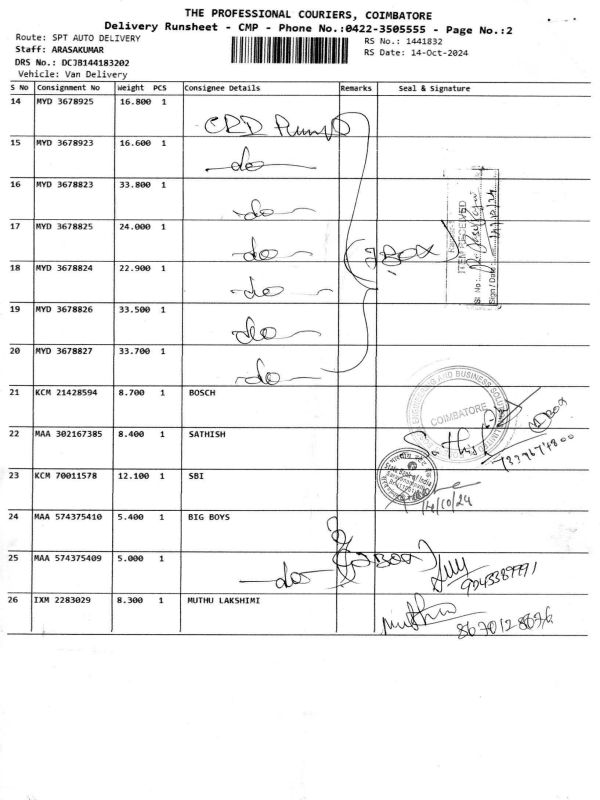 THE PROFESSIONAL COURIERS, COIMBATORE
Delivery Runsheet - CMP - Phone No.:0422-3505555 - Page No.:2
Route: SPT AUTO DELIVERY
RS No.: 1441832
Staff: ARASAKUMAR
RS Date: 14-Oct-2024
DRS No.: DCJB144183202
Vehicle: Van Delivery
S No Consignment No Weight PCS Consignee Details Remarks Seal & Signature
14 MYD 3678925 16.800 1
15 MYD 3678923 16.600 1 do
16 MYD 3678823 33.800 1 do
17 MYD 3678825 24.000 1 do
18 MYD 3678824 22.900 1 do
19 MYD 3678826 33.500 1 do
20 MYD 3678827 33.700 1 do
BOX
ITEM RECEIVED
Sl. No :
Sign / Date :
21 KCM 21428594 8.700 1 BOSCH
AND BUSINESS
COIMBATORE
22 MAA 302167385 8.400 1 SATHISH
Sathish
23 KCM 70011578 12.100 1 SBI
State Bank of India
14/10/24
24 MAA 574375410 5.400 1 BIG BOYS
25 MAA 574375409 5.000 1 do
BOX
26 IXM 2283029 8.300 1 MUTHU LAKSHIMI
Muthu